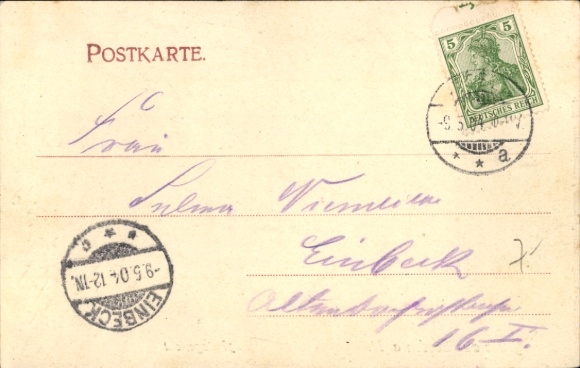 POSTKARTE.
5 5
DEUTSCHES REICH
-9.5.04
* * a
Frau
Selma Niemeier
Einbeck
Altendorferstraße
16 I.
-9.5.04.12-1N.
EINBECK